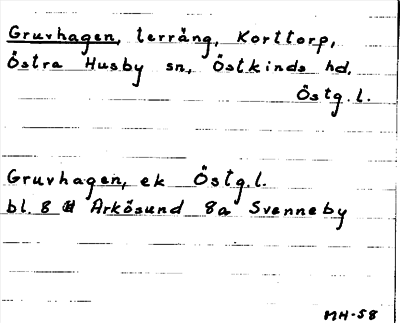 Gruvhagen, terräng, Korttorp,
Östra Husby sn, Östkinds hd,
Östg.l.
Gruvhagen, ek Östg.l.
bl. 8 H Arkösund 8a Svenneby
MH-58